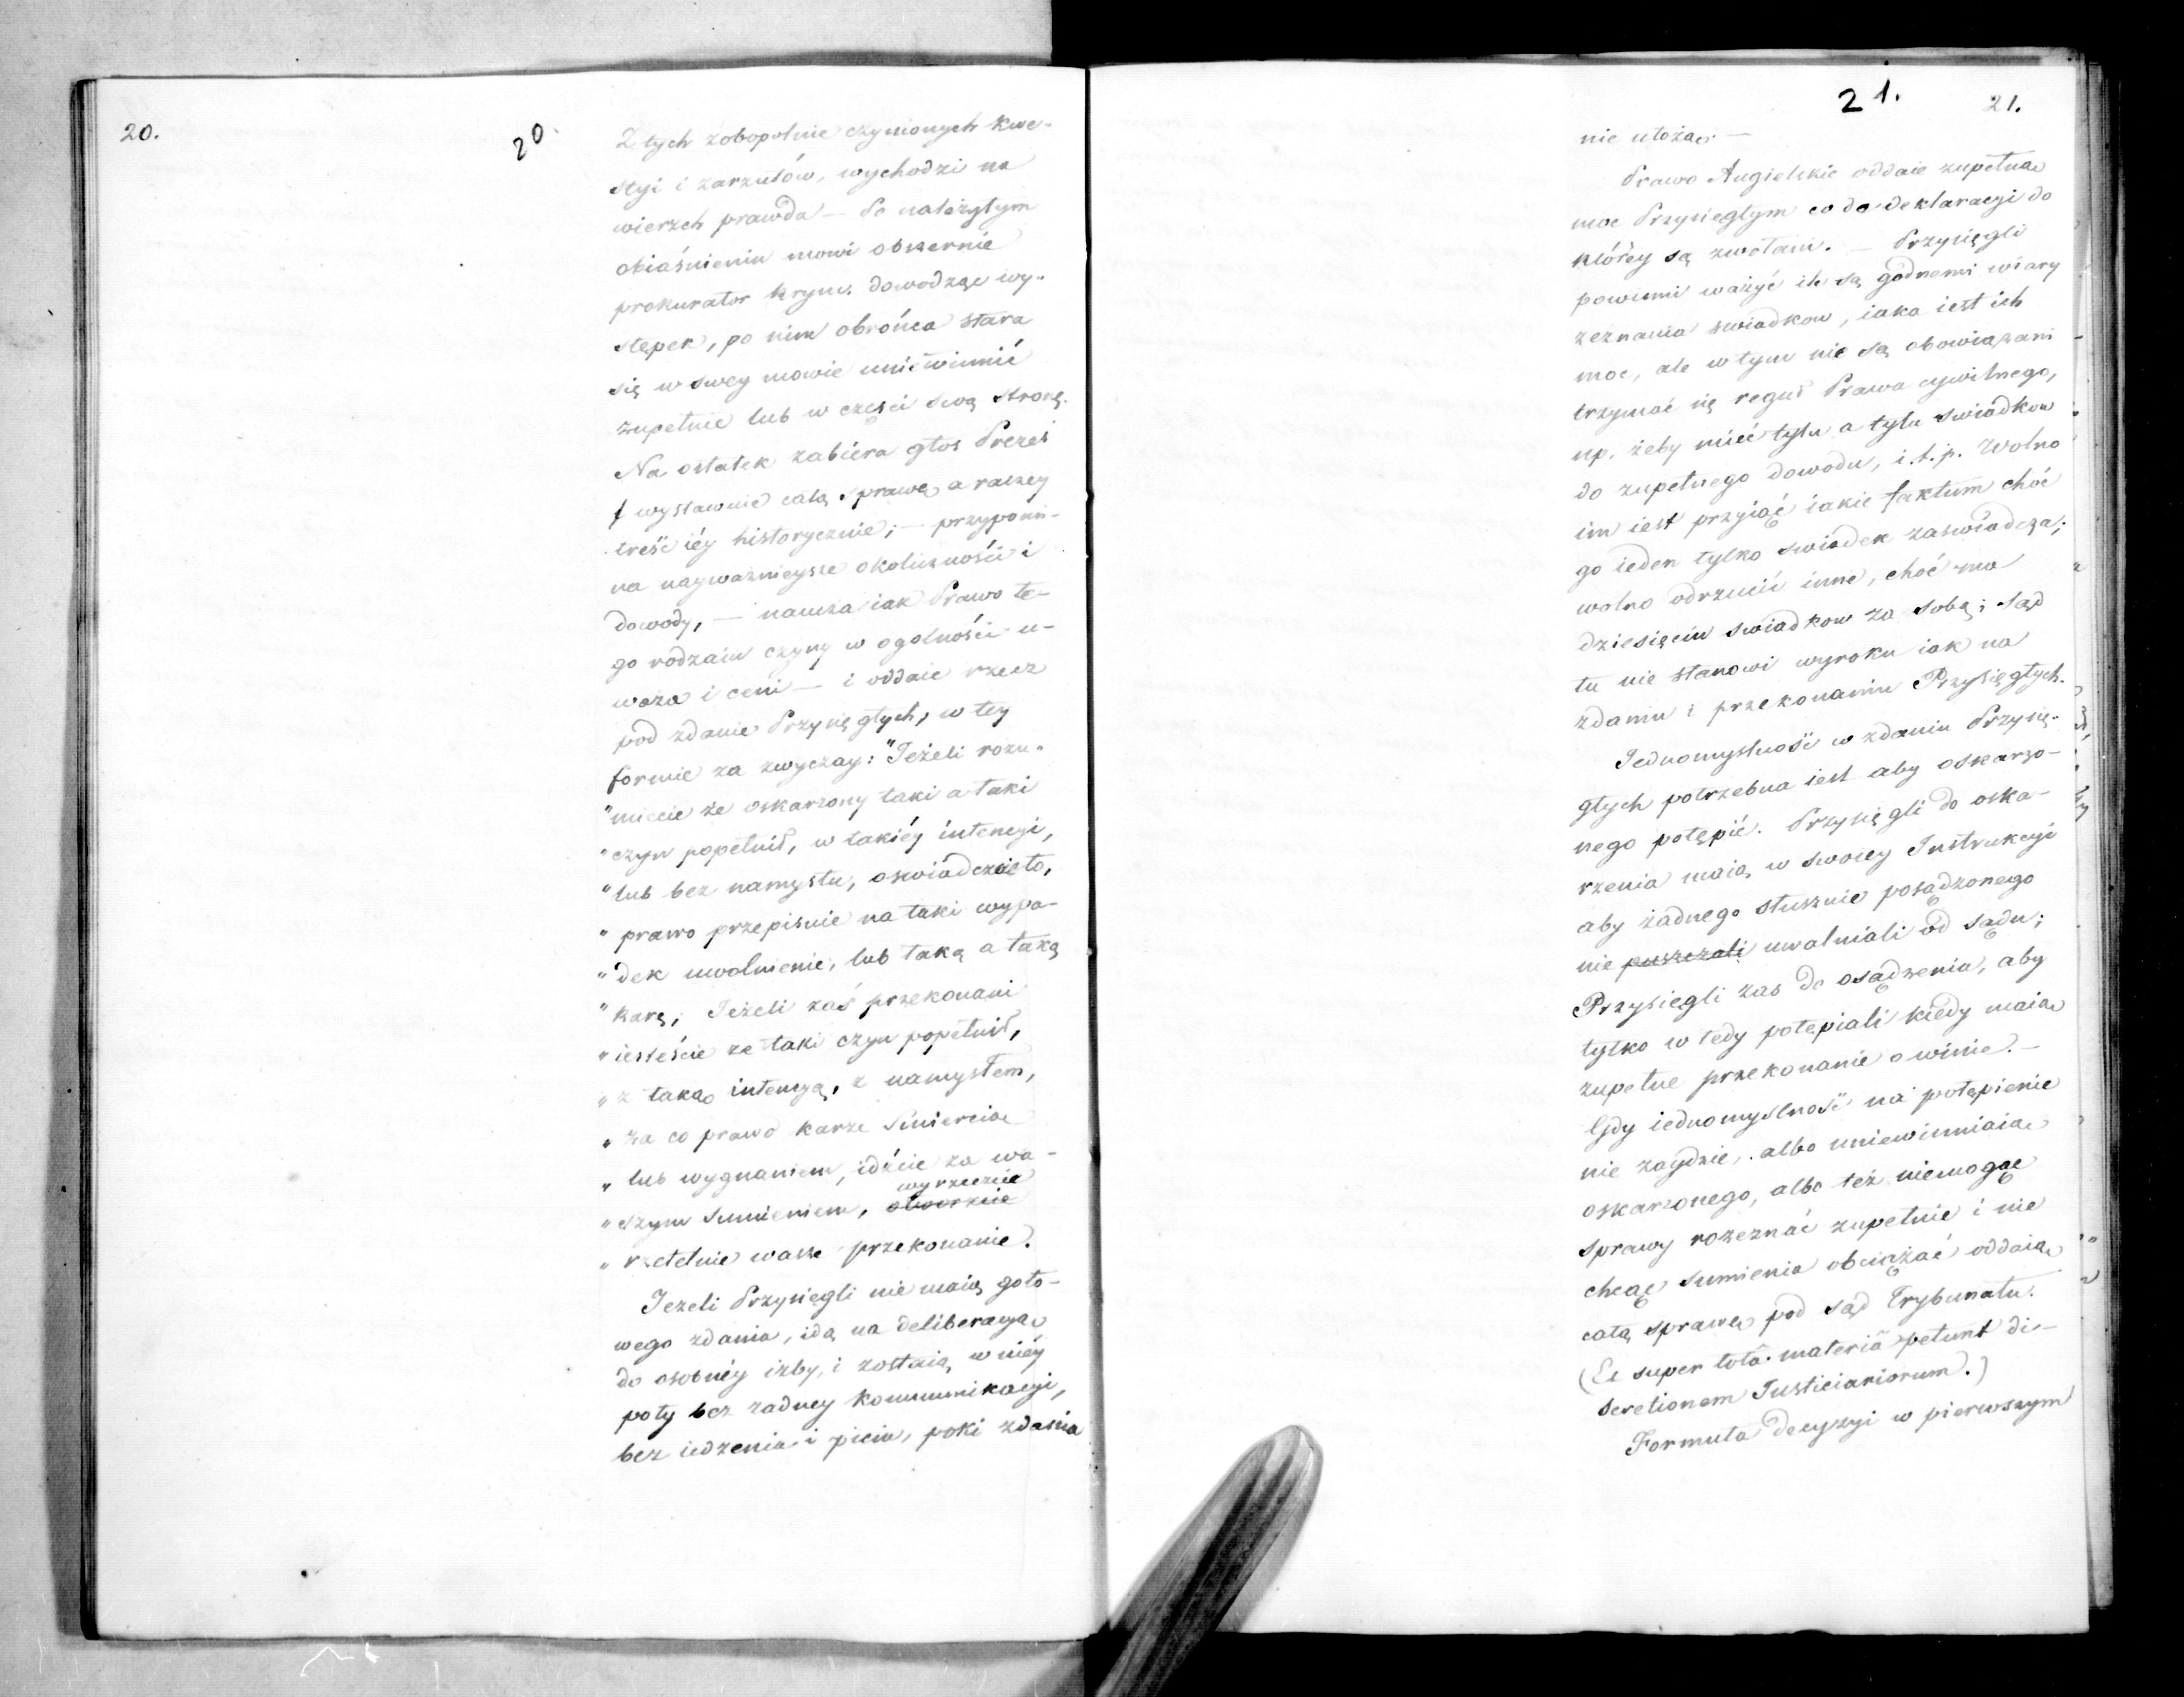 20.
20
Z tych zobopolnie czynionych kwe-
styi i zarzutów, wychodzi na
wierzch prawda — Po należytym
obiaśnieniu mowi obszernie
prokurator krym. dowodząc wy-
stępek, po nim obrońca stara
się w swey mowie uniewinnić
zupełnie lub w części swą stronę.
Na ostatek zabiera głos Prezes
wystawuie całą sprawę a raczey
treść iéy historycznie; — przypomi-
na nayważnieysze okoliczności i
dowody, — naucza iak Prawo te-
go rodzaiu czyny w ogolności u-
waża i ceni — i oddaie rzecz
pod zdanie Przysięgłych, w tey
formie za zwyczay: "Jeżeli rozu-
"miecie że oskarzony taki a taki
"czyn popełnił, w takiéy intencyi,
"lub bez namysłu, oświadczcie to,
"prawo przepisuie na taki wypa-
"dek uwolnienie, lub taką a taką
"karę; Jeżeli zaś przekonani
"iesteście że taki czyn popełnił,
"z taką intencyą, z namysłem,
"za co prawo karze śmiercią
"lub wygnaniem, idźcie za wa-
wyrzeczcie
"szym sumieniem, otworzcie
"rzetelnie wasze przekonanie.
Jeżeli Przysięgli nie maią goto-
wego zdania, idą na deliberacyą
do osobnéy izby, i zostaią w niéy
poty bez żadney kommunikacyi,
bez iedzenia i picia, poki zdania
21.
21.
nie ułożą. —
Prawo Angielskie oddaie zupełną
moc Przysięgłym co do deklaracyi do
któréy są zwołani. — Przysięgli
powinni ważyć ile są godnemi wiary
zeznania swiadkow, iaka iest ich
moc, ale w tym nie są obowiązani
trzymać się reguł Prawa cywilnego,
np. żeby mieć tylu a tylu swiadkow
do zupełnego dowodu, i.t.p. Wolno
im iest przyiąć iakie faktum choć
go ieden tylko swiadek zaswiadcza;
wolno odrzucić inne, choć ma
dziesięciu swiadkow za sobą; sąd
tu nie stanowi wyroku iak na
zdaniu i przekonaniu Przysięgłych.
Jednomyslność w zdaniu Przysię-
głych potrzebna iest aby oskarzo-
nego potępić. Przysięgli do oska-
rzenia maią w swoiey Instrukcyi
aby żadnego słusznie posądzonego
nie puszczali uwalniali od sądu;
Przysięgli zas do osądzenia, aby
tylko w tedy potępiali kiedy maią
zupełne przekonanie o winie. —
Gdy iednomyslność na potępienie
nie zaydzie, albo uniewinniaią
oskarzonego, albo też niemogąc
sprawy rozeznać zupełnie i nie
chcąc sumienia obciążać oddaią
całą sprawę pod sąd Trybunału.
(Et super totâ materiâ petunt di-
scretionem Justiciariorum.)
Formuła decyzyi w pierwszym